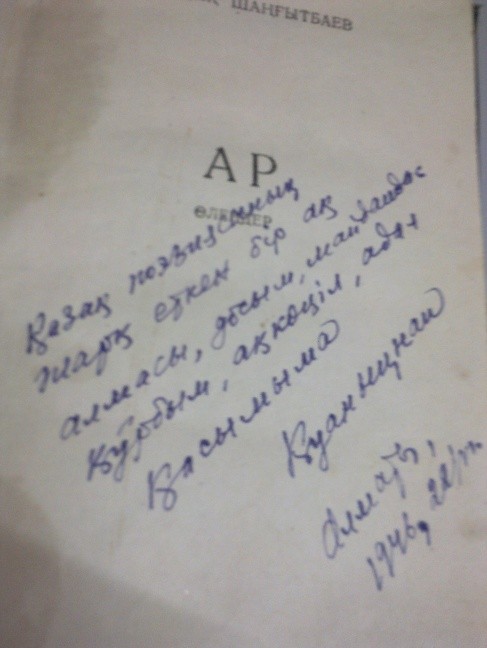 ШАҢҒЫТБАЕВ
АР
ӨЛЕҢДЕР
Қазақ поэзиясының
жарқ еткен бір ақ
алмасы, досым, майдандос
құрбым, ақкөңіл, адал
Қасымыма
Қуанышнан
Алматы,
1946,